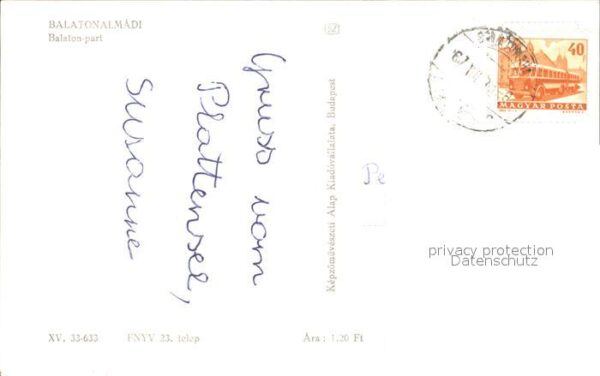 BALATONALMÁDI
Balaton-part
Gruss vom
Plattensee,
Susanne
Képzőművészeti Alap Kiadóvállalata, Budapest
XV. 33-633 FNYV 23. telep Ára: 1,20 Ft
40
MAGYAR POSTA
Pe
privacy protection
Datenschutz